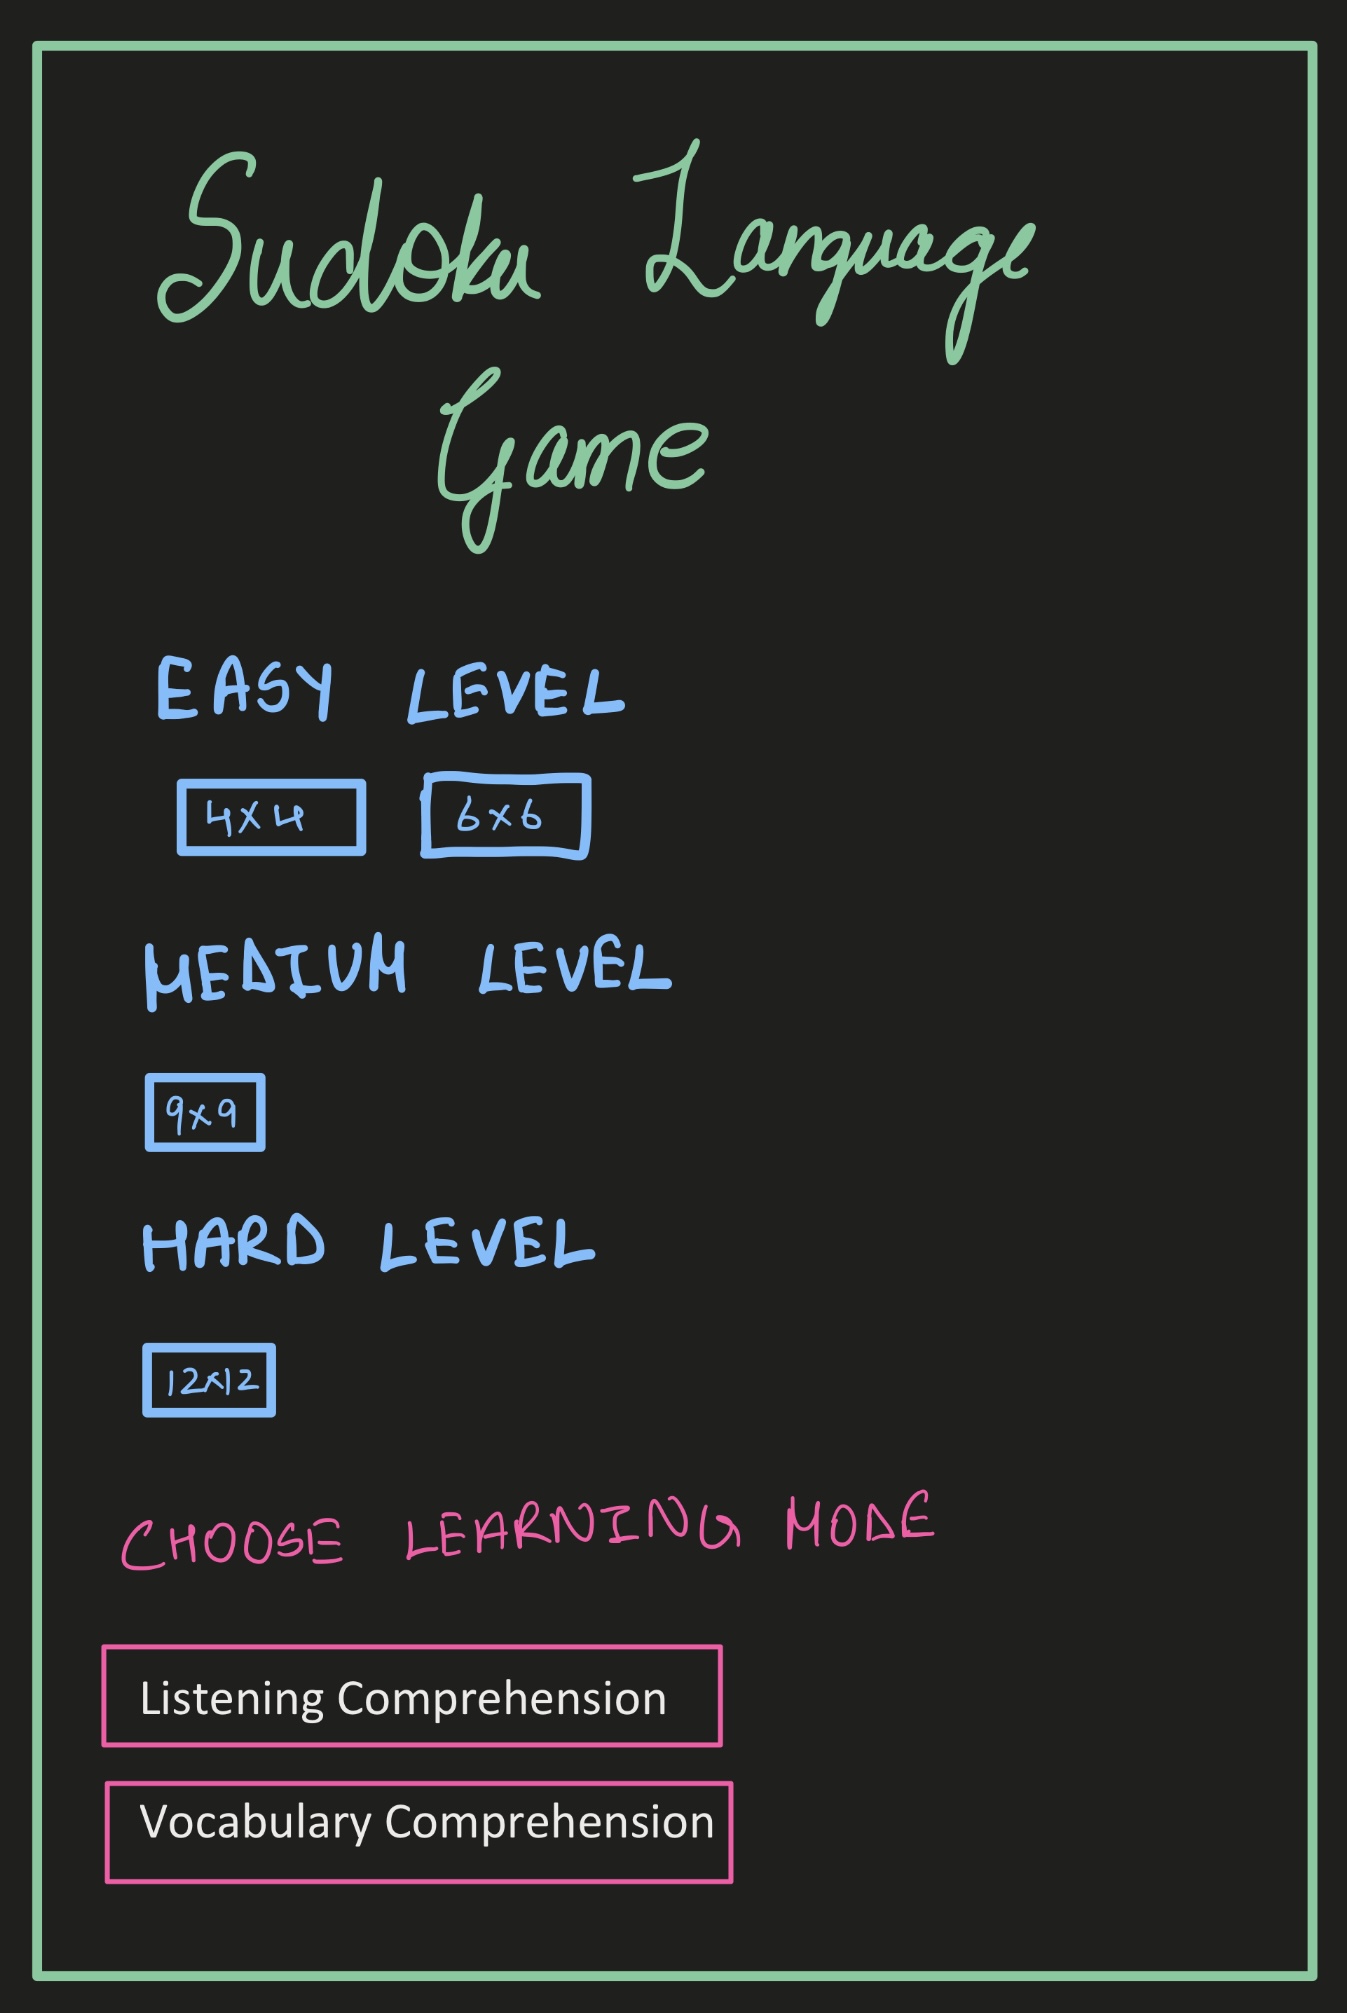 Sudoku Language
Game
EASY LEVEL
4x4 6x6
MEDIUM LEVEL
9x9
HARD LEVEL
12x12
CHOOSE LEARNING MODE
Listening Comprehension
Vocabulary Comprehension